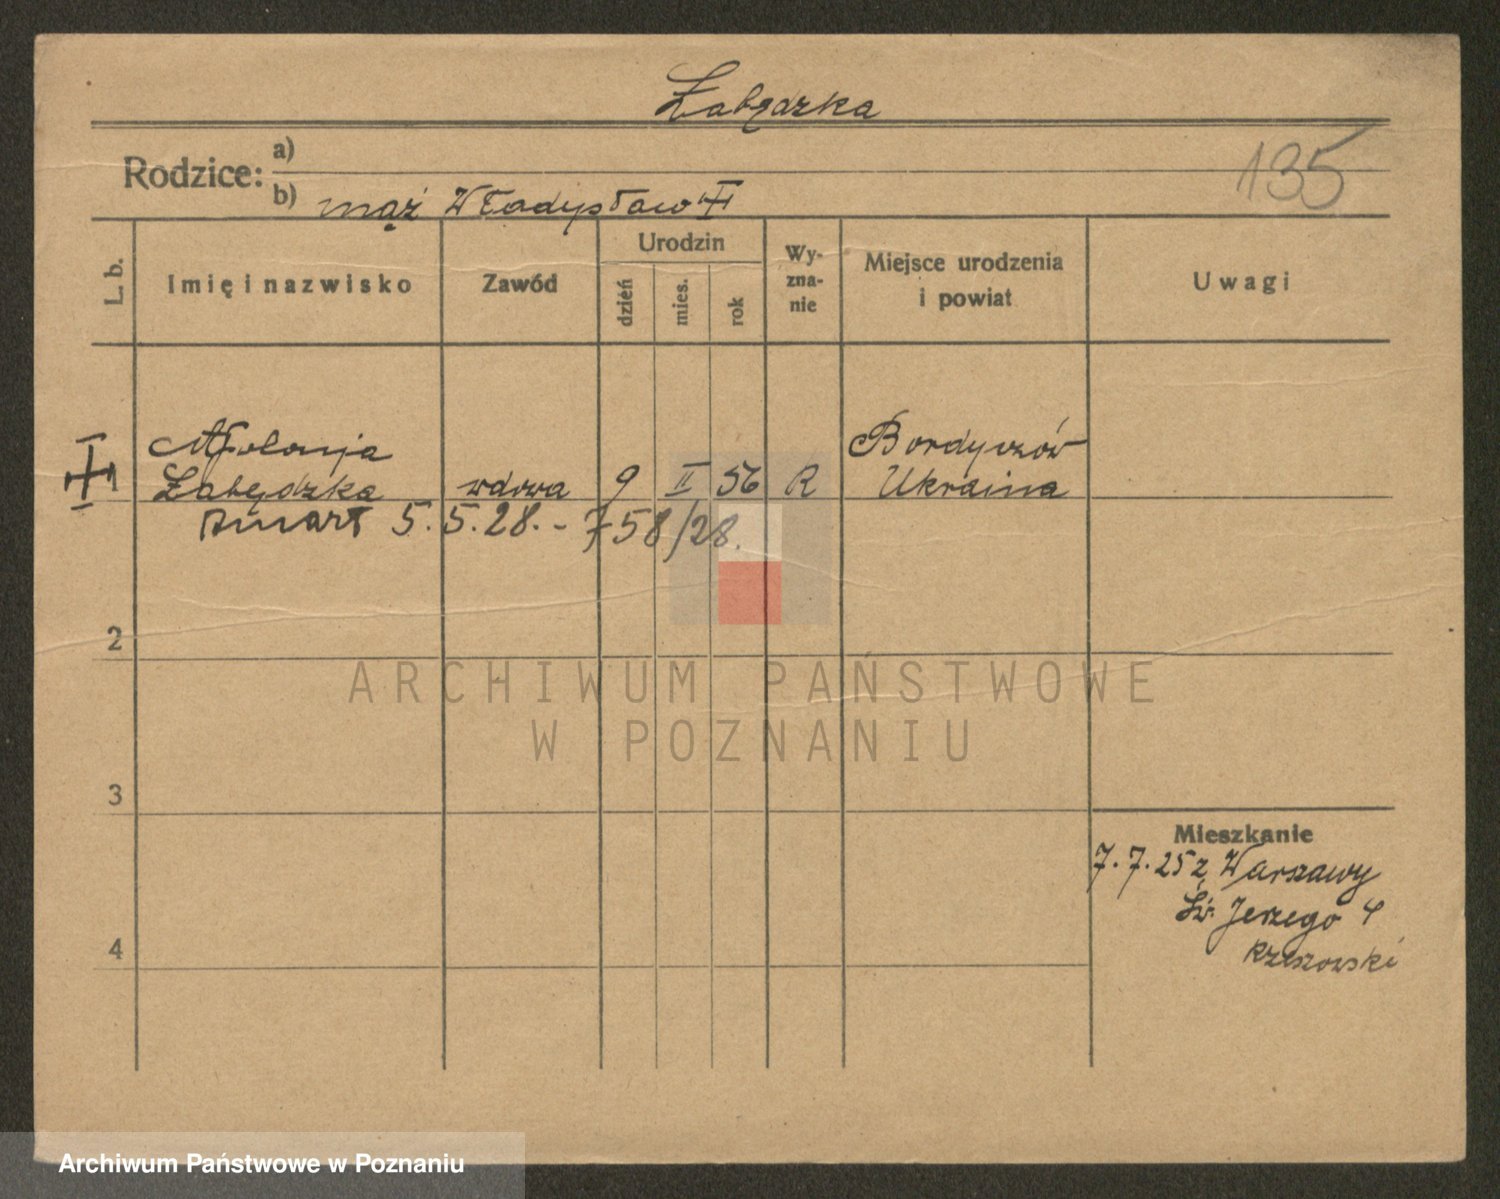 Łabędzka
135
Rodzice:
a)
b) mąż Władysław
L. b.
Imię i nazwisko
Zawód
Urodzin
dzień
mies.
rok
Wy-
zna-
nie
Miejsce urodzenia
i powiat
Uwagi
1
Apolonja
Łabędzka
wdowa
9
II
56
R
Bordyczów
Ukraina
zmarł 5.5.28.- 758/28.
2
ARCHIWUM PAŃSTWOWE
W POZNANIU
3
Mieszkanie
7.7.25 z Warszawy
Św. Jerzego 4
Rzeszowski
4
Archiwum Państwowe w Poznaniu